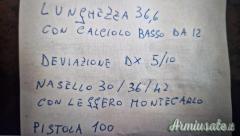 LUNGHEZZA 36,6
CON CALCIOLO BASSO DA 12
DEVIAZIONE DX 5/10
NASELLO 30/36/42
CON LEGGERO MONTECARLO
PISTOLA 100
Armiusate.it